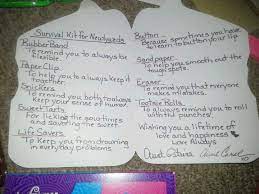 Survival Kit for Newlyweds
Rubber Band
To remind you to always be
flexible
Paper Clip
To help you always keep it
together
Snickers
To remind you both to always
keep your sense of humor
Sweet Tarts
For licking the good times
and savoring the sweet
Life Savers
To Keep you from drowning
in everyday problems
Button -
Because sometimes you have
to learn to button your lip
Sand paper -
To help you smooth out the
tough spots
Eraser -
To remind you that everyone
makes mistakes
Tootsie Rolls -
To always remind you to roll
with the punches
Wishing you a lifetime of
love and happiness
Love Always
Aunt